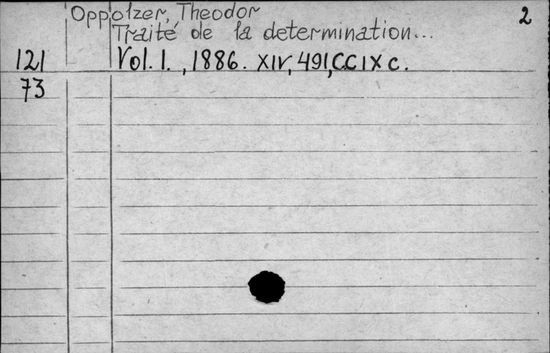 Oppolzer, Theodor 2
Traité de la determination...
121 Vol. I., 1886. XIV, 491, CCIX c.
73